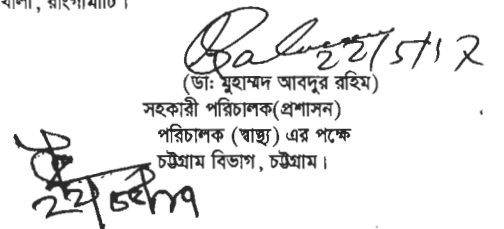 খালী, রাংগামাটি।
22/5/17
(ডাঃ মুহাম্মদ আবদুর রহিম)
সহকারী পরিচালক(প্রশাসন)
পরিচালক (স্বাস্থ্য) এর পক্ষে
চট্টগ্রাম বিভাগ, চট্টগ্রাম।